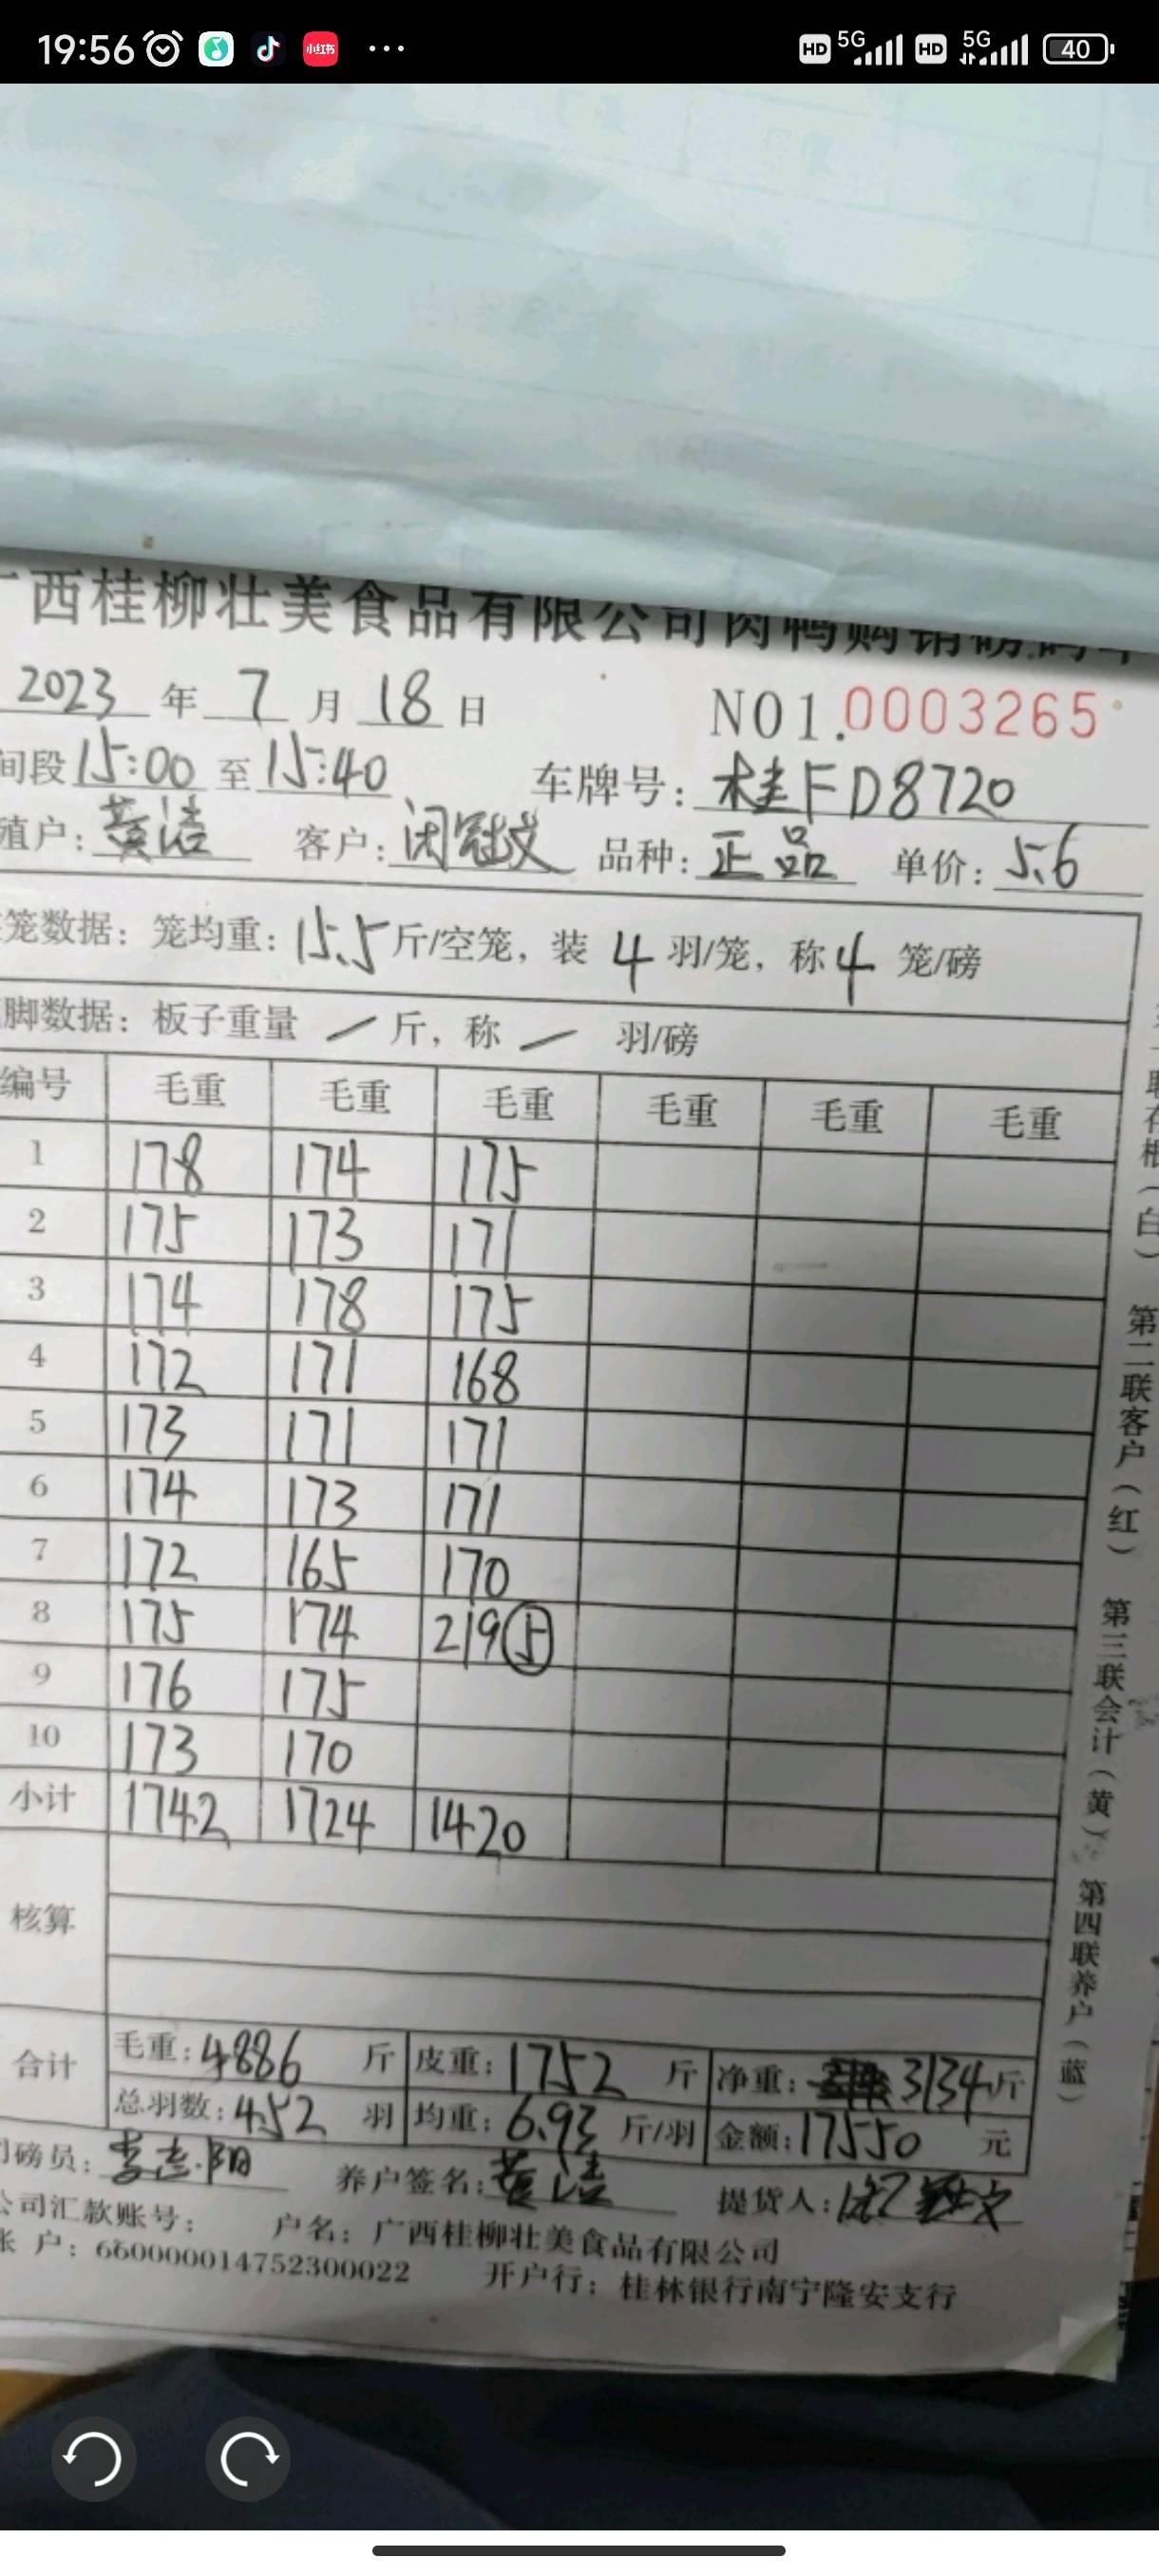 19:56 小红书 ... HD 5G HD 5G 40
西桂柳壮美食品有限公司肉鸭购销磅码单
2023年7月18日 NO1.0003265
间段15:00至15:40 车牌号:桂FD8720
殖户:黄洁 客户:闭冠文 品种:正品 单价:5.6
笼数据:笼均重:15.5斤/空笼,装4羽/笼,称4笼/磅
脚数据:板子重量 / 斤,称 — 羽/磅
编号 毛重 毛重 毛重 毛重 毛重 毛重
1 178 174 175
2 175 173 171
3 174 178 175
4 172 171 168
5 173 171 171
6 174 173 171
7 172 165 170
8 175 174 219⑤
9 176 175
10 173 170
小计 1742 1724 1420
核算
合计 毛重:4886斤 皮重:1752斤 净重:3134斤
总羽数:452羽 均重:6.93斤/羽 金额:17550元
磅员: 养户签名:黄洁 提货人:
公司汇款账号: 户名:广西桂柳壮美食品有限公司
账户:660000014752300022 开户行:桂林银行南宁隆安支行
存根(白) 第二联客户(红) 第三联会计(黄) 第四联养户(蓝)